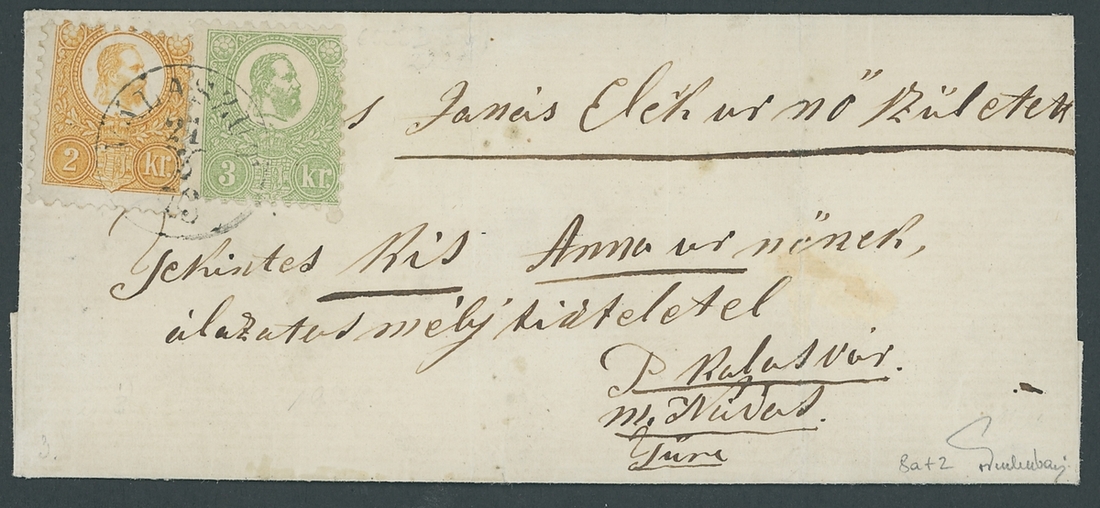 2 kr.
3 kr.
s Janás Elék ur nő Künletek
Tekintes Kis Anna ur nőnek,
álazatos mélj tisteletel
P. Kolosvár.
m. Nádas.
Türe
8a+2